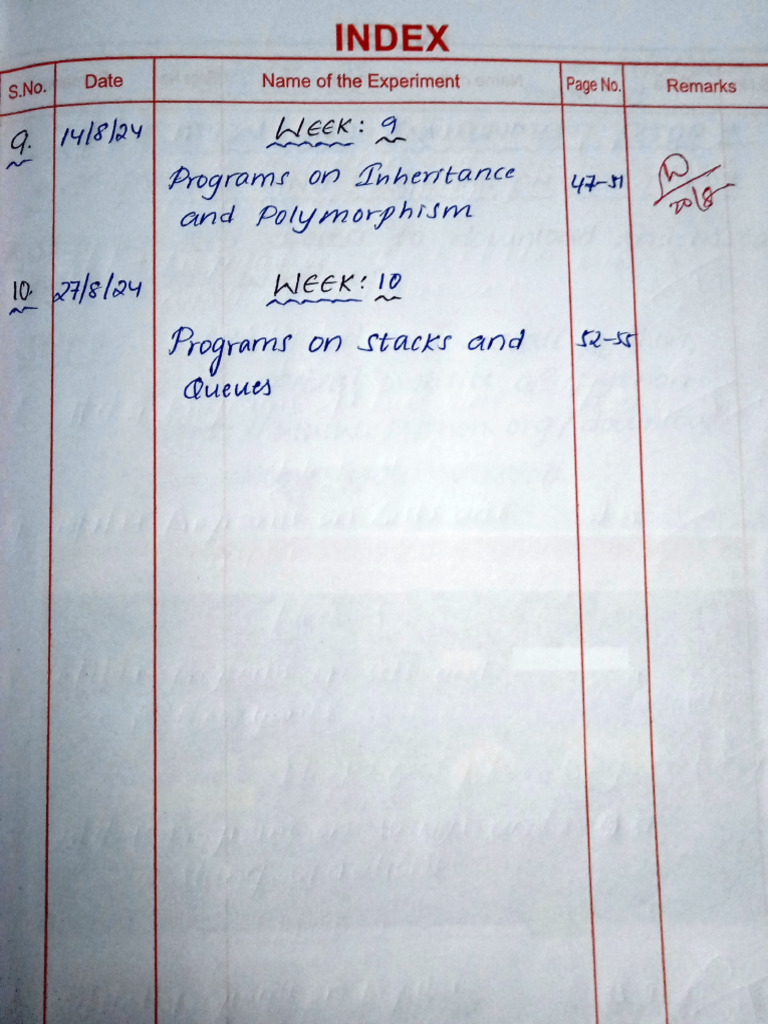 INDEX
S.No. Date Name of the Experiment Page No. Remarks
9. 14/8/24 WEEK: 9
Programs on Inheritance 47-51
and Polymorphism
20/8
10. 27/8/24 WEEK: 10
Programs on Stacks and 52-55
Queues